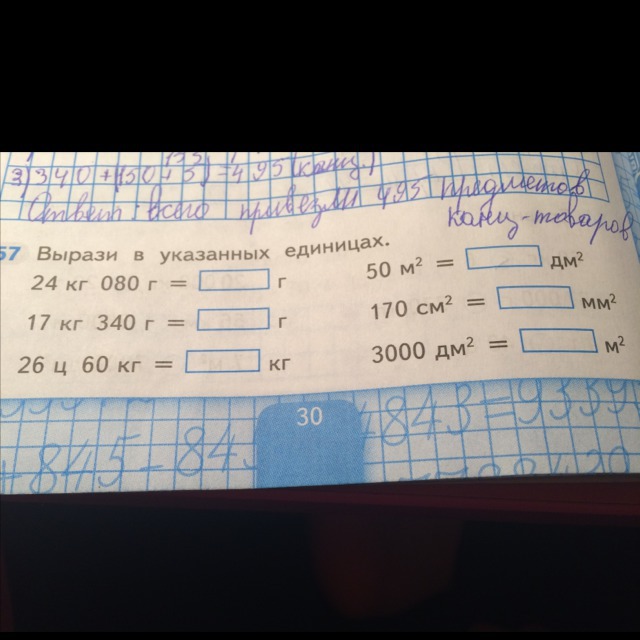 3) 340 + (150 + 5) = 495 (канц.)
Ответ: всего привезли 495 предметов
канц-товаров
57 Вырази в указанных единицах.
24 кг 080 г = г
17 кг 340 г = г
26 ц 60 кг = кг
50 м² = дм²
170 см² = мм²
3000 дм² = м²
30